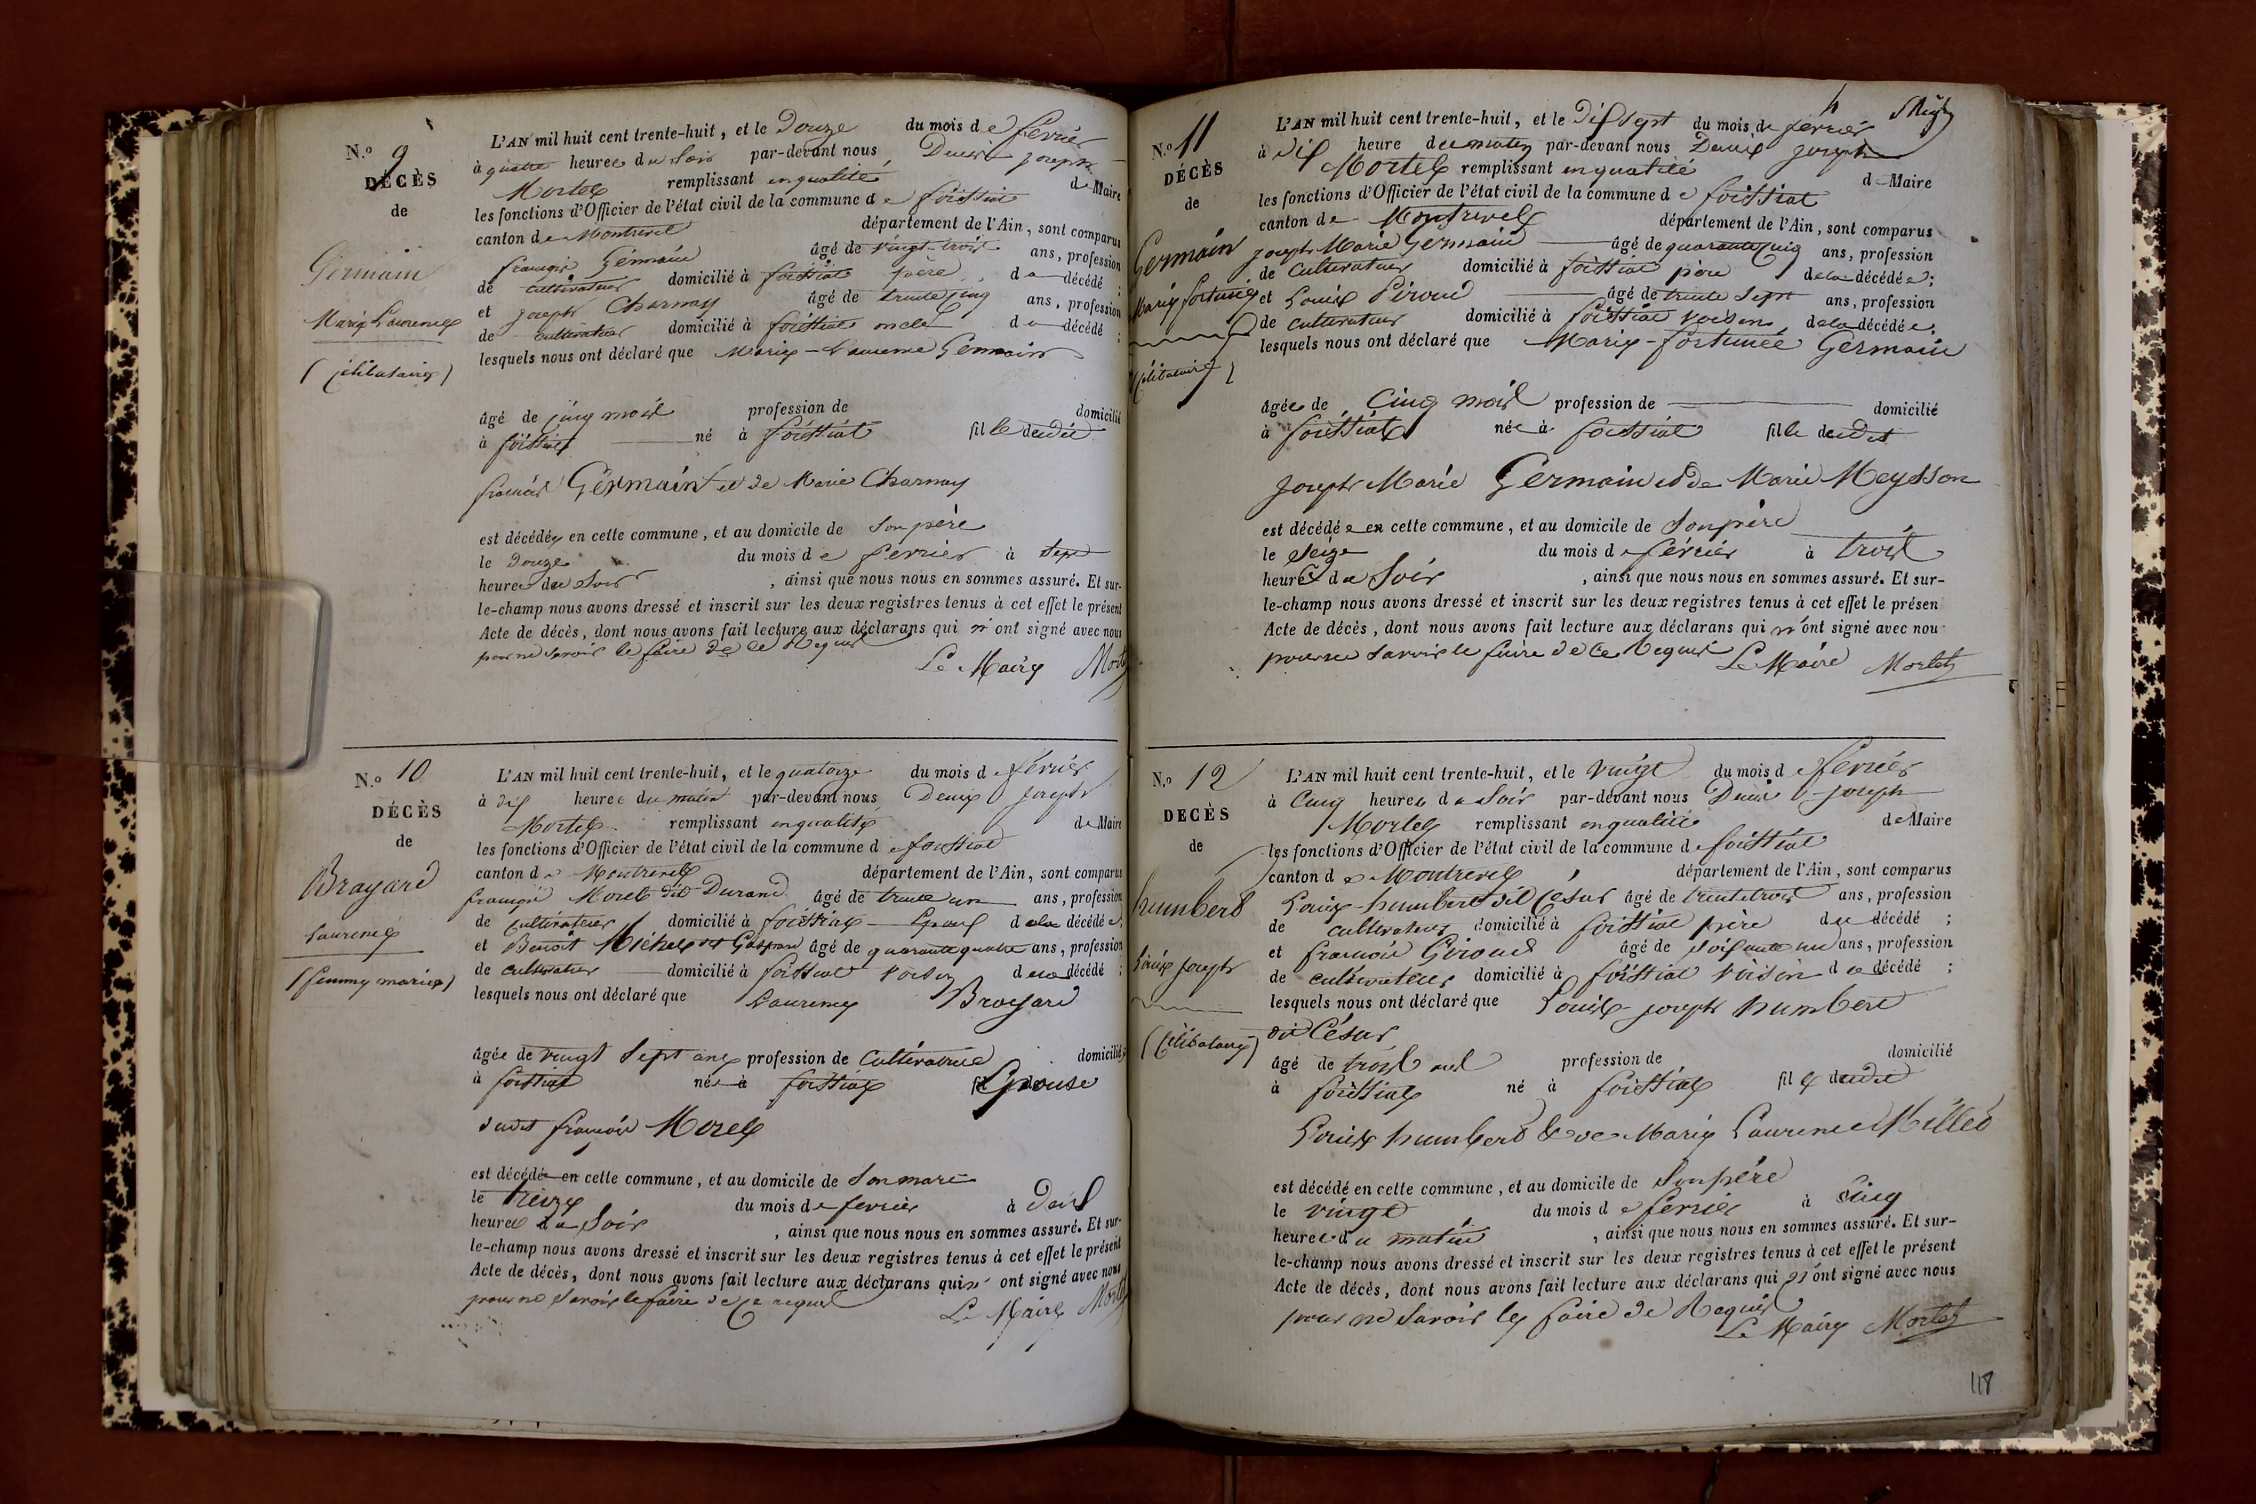 N.o 9
DÉCÈS
de
Germain
Marie Laurence
(Célibataire)
L'AN mil huit cent trente-huit, et le Douze du mois de février
à quatre heures du Soir par-devant nous Denis Joseph
Mortel remplissant en qualité de Maire
les fonctions d'Officier de l'état civil de la commune de foissiat
canton de Montrevel département de l'Ain, sont comparus
françois Germain âgé de vingt-trois ans, profession
de cultivateur domicilié à foissiat père du décédé ;
et joseph Charnay âgé de trente cinq ans, profession
de cultivateur domicilié à foissiat oncle du décédé ;
lesquels nous ont déclaré que Marie-Laurence Germain
âgé de cinq mois profession de domicilié
à foissiat né à foissiat fille dudit
françois Germain et de Marie Charnay
est décédée en cette commune, et au domicile de Son père
le Douze du mois de février à Sept
heures du Soir , ainsi que nous nous en sommes assuré. Et sur-
le-champ nous avons dressé et inscrit sur les deux registres tenus à cet effet le présent
Acte de décès, dont nous avons fait lecture aux déclarans qui n'ont signé avec nous
pour ne Savoir le faire de ce Requis
Le Maire
N.o 10
DÉCÈS
de
Brayard
Laurence
(femme mariée)
L'AN mil huit cent trente-huit, et le quatorze du mois de février
à dix heures du matin par-devant nous Denis Joseph
Mortel remplissant en qualité de Maire
les fonctions d'Officier de l'état civil de la commune de foissiat
canton de Montrevel département de l'Ain, sont comparus
françois Morel dit Durand âgé de trente un ans, profession
de Cultivateur domicilié à foissiat Epoux de la décédée ;
et Benoit Michel dit Gaspard âgé de quarante quatre ans, profession
de cultivateur domicilié à foissiat voisin de la décédé ;
lesquels nous ont déclaré que Laurence Brayard
âgée de vingt Sept ans profession de Cultivatrice domiciliée
à foissiat née à foissiat fil Epouse
dudit françois Morel
est décédée en cette commune, et au domicile de Son mari
le treize du mois de fevrier à Deux
heures du Soir , ainsi que nous nous en sommes assuré. Et sur-
le-champ nous avons dressé et inscrit sur les deux registres tenus à cet effet le présent
Acte de décès, dont nous avons fait lecture aux déclarans qui n'ont signé avec nous
pour ne Savoir le faire de Ce requis
Le Maire
N.o 11
DÉCÈS
de
Germain
Marie fortunée
(Célibataire)
L'AN mil huit cent trente-huit, et le Dix Sept du mois de février
à dix heure du matin par-devant nous Denis Joseph
Mortel remplissant en qualité de Maire
les fonctions d'Officier de l'état civil de la commune de foissiat
canton de Montrevel département de l'Ain, sont comparus
joseph Marie Germain âgé de quarante cinq ans, profession
de Cultivateur domicilié à foissiat père de la décédée ;
et Louis Piroud âgé de trente Sept ans, profession
de cultivateur domicilié à foissiat voisin, de la décédée ;
lesquels nous ont déclaré que Marie-fortunée Germain
âgée de Cinq mois profession de domicilié
à foissiat née à foissiat fille dudit
Joseph Marie Germain et de Marie Meysson
est décédée en cette commune, et au domicile de Son père
le Seize du mois de février à trois
heures du Soir , ainsi que nous nous en sommes assuré. Et sur-
le-champ nous avons dressé et inscrit sur les deux registres tenus à cet effet le présen
Acte de décès, dont nous avons fait lecture aux déclarans qui n'ont signé avec nou
pour ne Savoir le faire de Ce Requis Le Maire Mortel
N.o 12
DÉCÈS
de
humbert
Louis Joseph
(Célibataire)
L'AN mil huit cent trente-huit, et le vingt du mois de février
à Cinq heures du Soir par-devant nous Denis Joseph
Mortel remplissant en qualité de Maire
les fonctions d'Officier de l'état civil de la commune de foissiat
canton de Montrevel département de l'Ain, sont comparus
Louis humbert dit César âgé de trente trois ans, profession
de cultivateur domicilié à foissiat père du décédé ;
et françois Giroud âgé de soixante un ans, profession
de cultivateur domicilié à foissiat voisin du décédé ;
lesquels nous ont déclaré que Louis joseph humbert
dit César
âgé de trois ans profession de domicilié
à foissiat né à foissiat fils dudit
Louis humbert & de Marie Laurence Millet
est décédé en cette commune, et au domicile de Son père
le vingt du mois de février à Cinq
heures du matin , ainsi que nous nous en sommes assuré. Et sur-
le-champ nous avons dressé et inscrit sur les deux registres tenus à cet effet le présent
Acte de décès, dont nous avons fait lecture aux déclarans qui n'ont signé avec nous
pour ne Savoir le faire de Requis
Le Maire Mortel
118